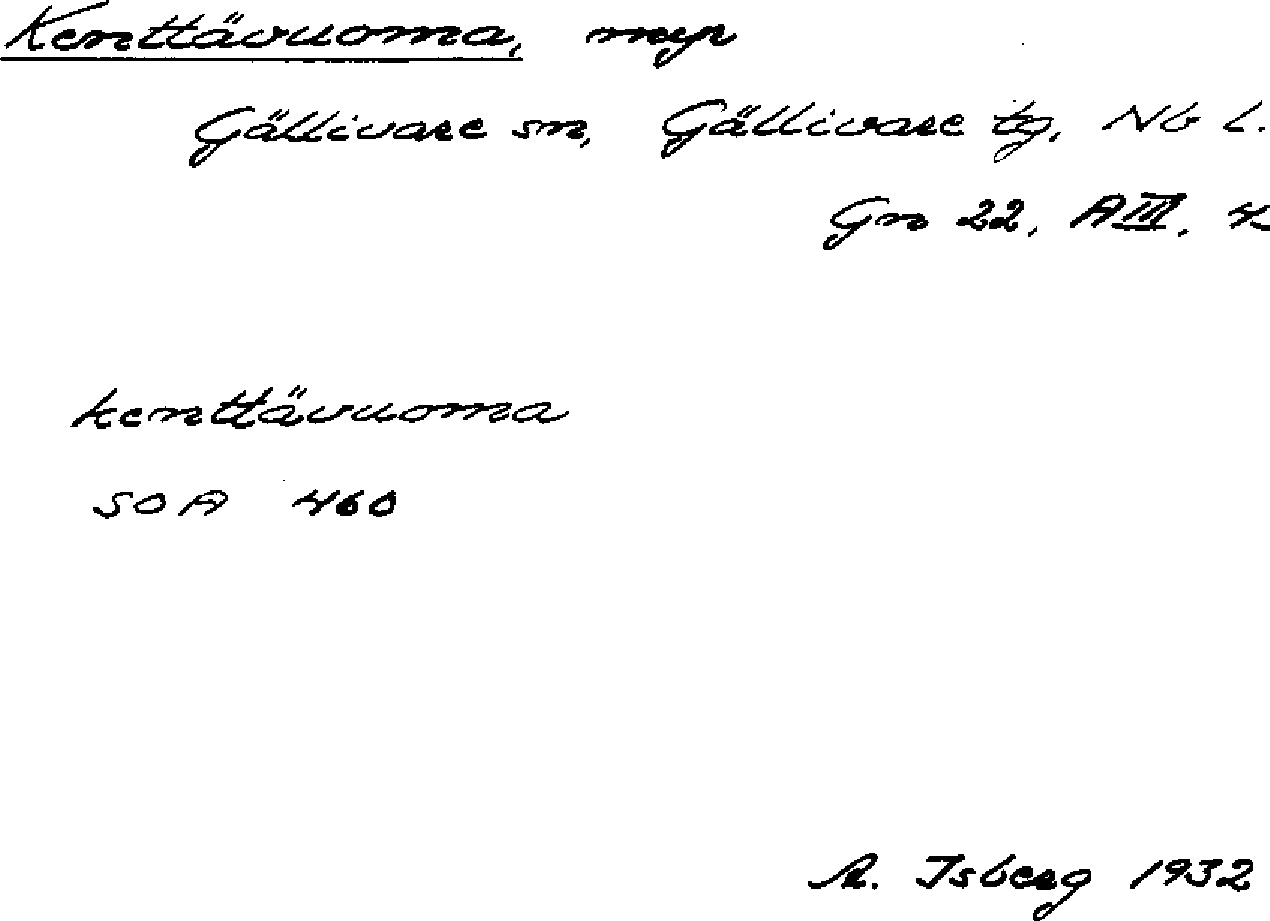 Kenttävuoma, myr
Gällivare sn, Gällivare tg, Nb l.
Gn 22, A III, 4
kenttävuoma
SOA 460
A. Isberg 1932